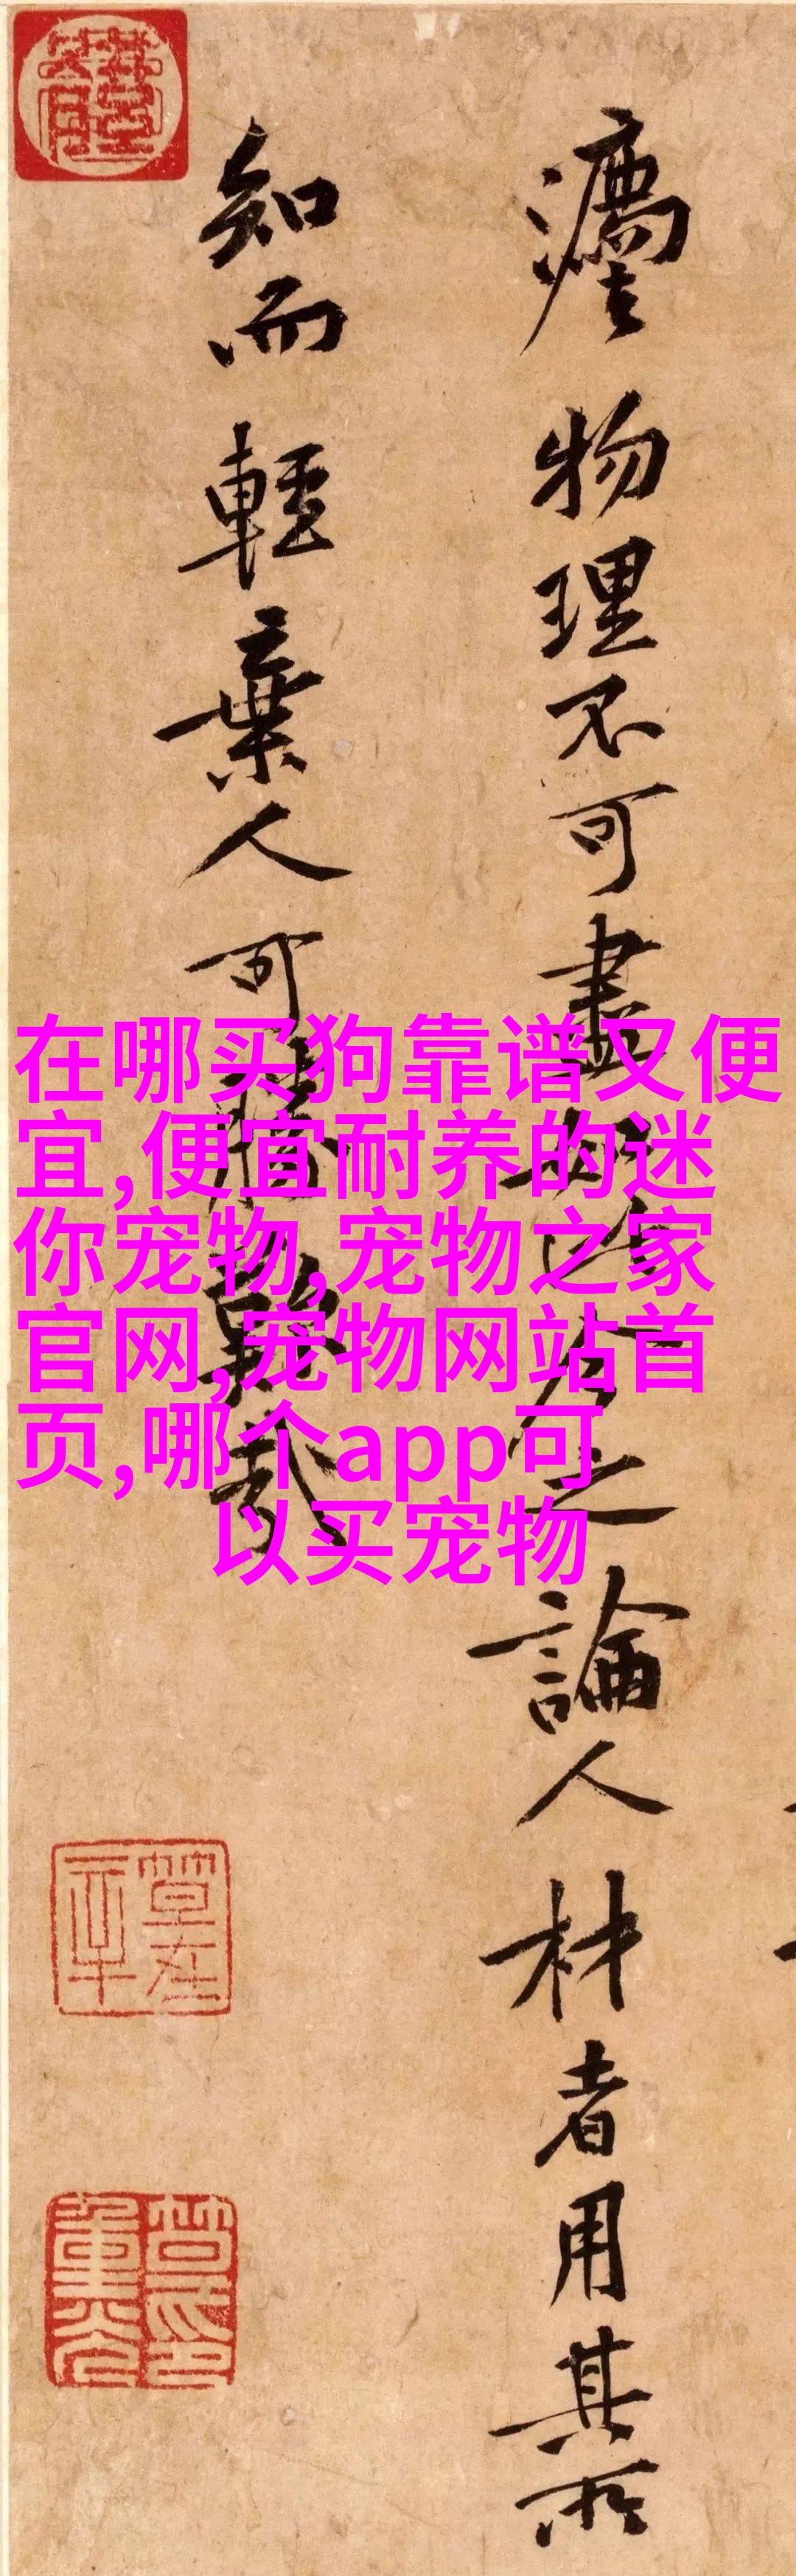 物理不可盡如此今之論人材者用其所
知而輕棄人可勝歎哉
在哪买狗靠谱又便
宜,便宜耐养的迷
你宠物,宠物之家
官网,宠物网站首
页,哪个app可
以买宠物